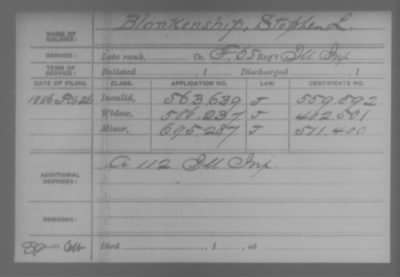 NAME OF SOLDIER: Blankenship, Stephen L.
SERVICE: Late rank, Co. F, 65 Reg't Ill Inf
TERM OF SERVICE: Enlisted , 1 Discharged , 1
DATE OF FILING. CLASS. APPLICATION NO. LAW. CERTIFICATE NO.
1886 Feb 26 Invalid, 563,639 J 559,592
Widow, 586,237 J 462,501
Minor, 695,287 J 511,400
ADDITIONAL SERVICES: A 112 Ill Inf
REMARKS:
Died , 1 , at